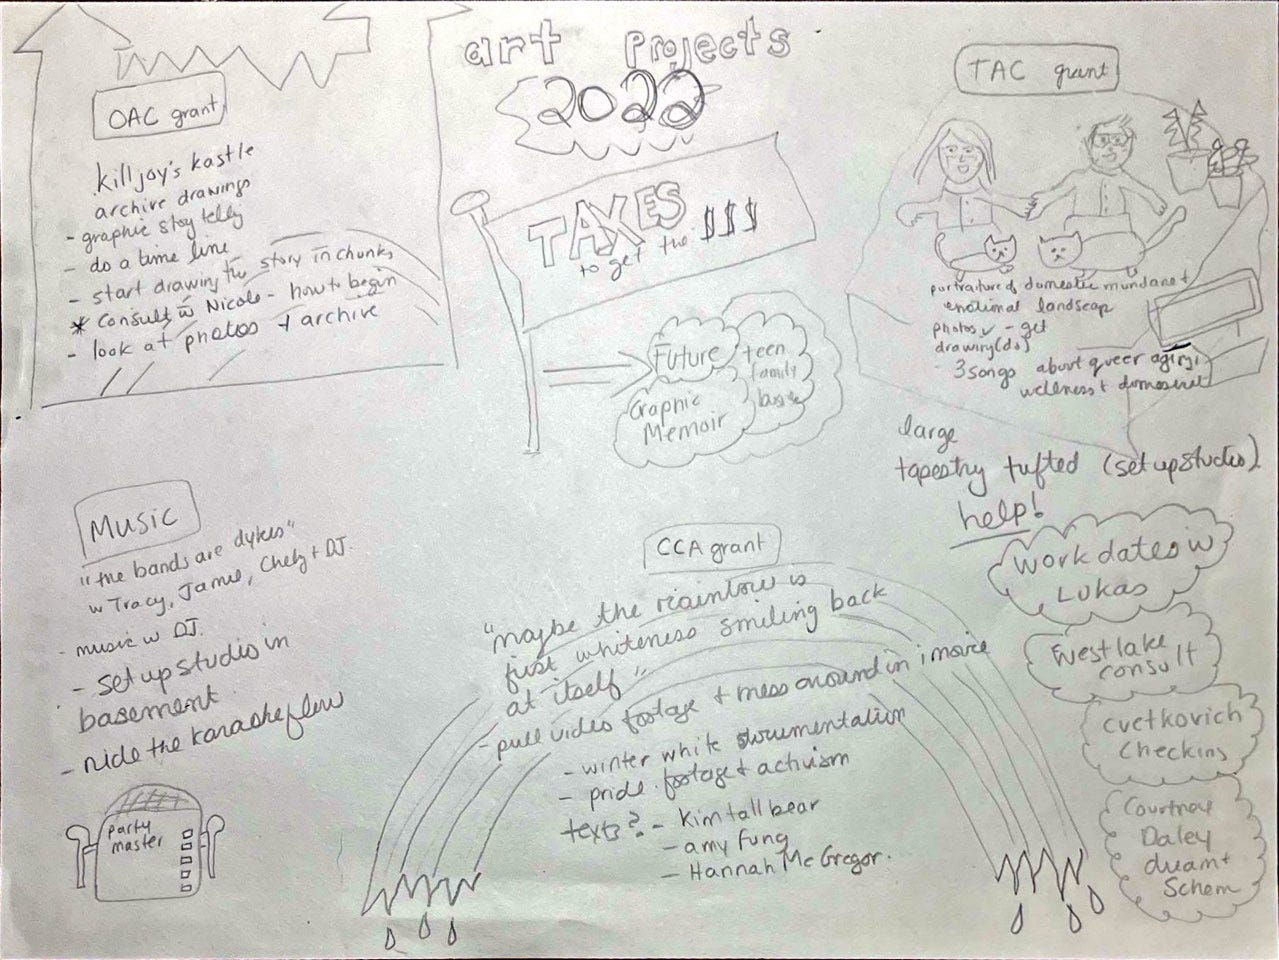 art projects
2022
OAC grant
killjoy's kastle
archive drawings
- graphic stoy telly
- do a time line
- start drawing the story in chunks
* Consult w Nicole - how to begin
- look at photos + archive
TAXES
to get the $$$
Future
Graphic
Memoir
teen
family
TAC grant
portraiture of domestic mundane +
emotional landscap
photos ✓ - get
drawing (do)
- 3 songs about queer
wellness +
large
tapestry tufted (set up studio)
help!
work dates w
Lukas
Westlake
consult
Cvetkovich
Checkins
Courtnay
Daley
dream +
Schem
Music
"the bands are dykes"
w Tracy, Jamie, Chely + DJ.
- music w DJ.
- set up studio in
basement
- ride the karaoke flow
party
master
CCA grant
"maybe the rainbow is
just whiteness smiling back
at itself"
- pull video footage + mess around in i movie
- winter white documentation
- pride footage + activism
texts? - Kim tall bear
- amy fung
- Hannah McGregor.